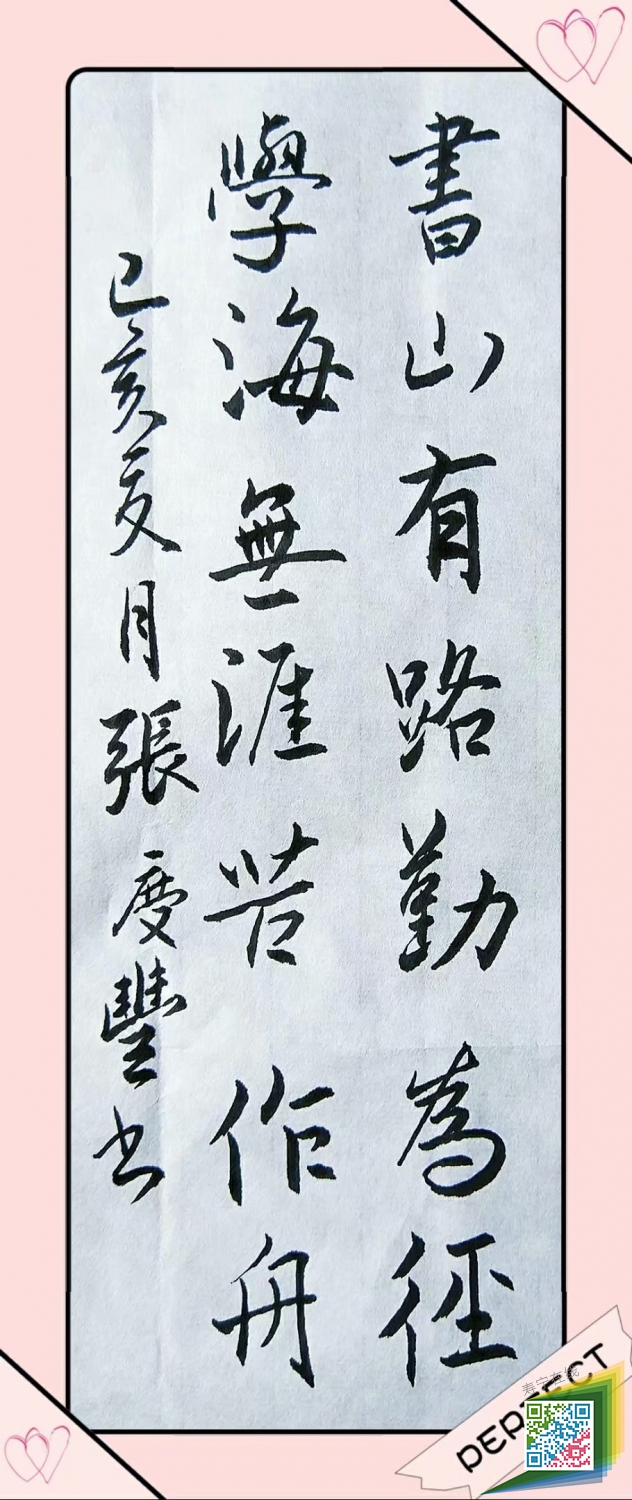 書山有路勤為徑
學海無涯苦作舟
己亥夏月張慶豐书
寿宁在线
PERFECT